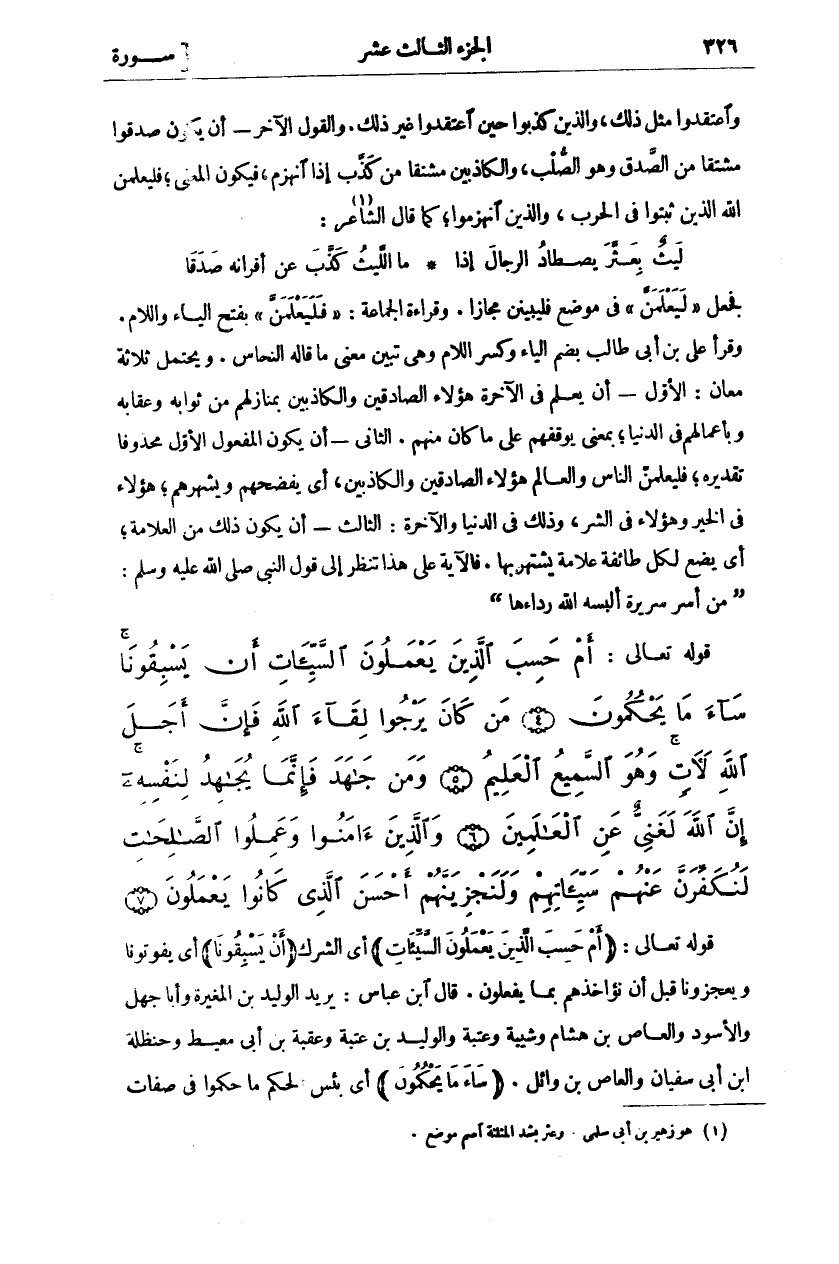 ٣٢٦ الجزء الثالث عشر [ سورة
وٱعتقدوا مثل ذلك، والذين كذبوا حين ٱعتقدوا غير ذلك. والقول الآخر — أن يكون صدقوا
مشتقا من الصِّدق وهو الصُّلْب، والكاذبين مشتقا من كَذَّب إذا ٱنهزم، فيكون المعنى؛ فليعلمن
الله الذين ثبتوا فى الحرب، والذين ٱنهزموا؛ كما قال الشاعر (١) :
لَيثٌ بِعَثَّرَ يصطادُ الرجالَ إذا * ما اللَّيثُ كَذَّبَ عن أقرانه صَدَقَا
بفعل « لَيَعْلَمَنَّ » فى موضع فليبينن مجازا . وقراءة الجماعة : « فَلَيَعْلَمَنَّ » بفتح الياء واللام.
وقرأ على بن أبى طالب بضم الياء وكسر اللام وهى تبين معنى ما قاله النحاس . ويحتمل ثلاثة
معان : الأوّل — أن يعلم فى الآخرة هؤلاء الصادقين والكاذبين بمنازلهم من ثوابه وعقابه
وبأعمالهم فى الدنيا؛ بمعنى يوقفهم على ما كان منهم . الثانى — أن يكون المفعول الأوّل محذوفا
تقديره؛ فليعلمنّ الناس والعالم هؤلاء الصادقين والكاذبين، أى يفضحهم ويشهرهم؛ هؤلاء
فى الخير وهؤلاء فى الشر، وذلك فى الدنيا والآخرة : الثالث — أن يكون ذلك من العلامة؛
أى يضع لكل طائفة علامة يشتهر بها . فالآية على هذا تنظر إلى قول النبى صلى الله عليه وسلم :
” من أسر سريرة ألبسه الله رداءها “
قوله تعالى : أَمْ حَسِبَ ٱلَّذِينَ يَعْمَلُونَ ٱلسَّيِّئَاتِ أَن يَسْبِقُونَا ۚ
سَآءَ مَا يَحْكُمُونَ ﴿٤﴾ مَن كَانَ يَرْجُوا لِقَآءَ ٱللَّهِ فَإِنَّ أَجَلَ
ٱللَّهِ لَآتٍ ۚ وَهُوَ ٱلسَّمِيعُ ٱلْعَلِيمُ ﴿٥﴾ وَمَن جَٰهَدَ فَإِنَّمَا يُجَٰهِدُ لِنَفْسِهِۦٓ ۚ
إِنَّ ٱللَّهَ لَغَنِىٌّ عَنِ ٱلْعَٰلَمِينَ ﴿٦﴾ وَٱلَّذِينَ ءَامَنُوا وَعَمِلُوا ٱلصَّٰلِحَٰتِ
لَنُكَفِّرَنَّ عَنْهُمْ سَيِّئَاتِهِمْ وَلَنَجْزِيَنَّهُمْ أَحْسَنَ ٱلَّذِى كَانُوا يَعْمَلُونَ ﴿٧﴾
قوله تعالى : ﴿ أَمْ حَسِبَ ٱلَّذِينَ يَعْمَلُونَ السَّيِّئَاتِ ﴾ أى الشرك ﴿ أَنْ يَسْبِقُونَا ﴾ أى يفوتونا
ويعجزونا قبل أن نؤاخذهم بما يفعلون . قال ٱبن عباس : يريد الوليد بن المغيرة وأبا جهل
والأسود والعاص بن هشام وشيبة وعتبة والوليد بن عتبة وعقبة بن أبى معيط وحنظلة
ابن أبى سفيان والعاص بن وائل . ﴿ سَاءَ مَا يَحْكُمُونَ ﴾ أى بئس الحكم ما حكموا فى صفات
(١) هو زهير بن أبى سلمى . وعثر بشد المثلثة ٱسم موضع .